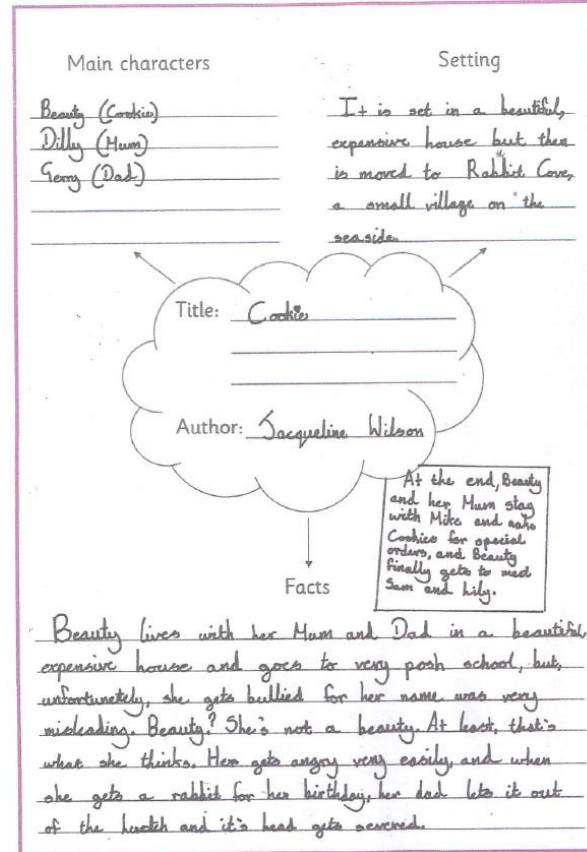 Main characters
Beauty (Cookie)
Dilly (Mum)
Gerry (Dad)
Setting
It is set in a beautiful,
expensive house but then
is moved to Rabbit Cove,
a small village on the
seaside.
Title: Cookie
Author: Jacqueline Wilson
At the end, Beauty
and her Mum stay
with Mike and make
Cookies for special
orders, and Beauty
finally gets to meet
Sam and Lily.
Facts
Beauty lives with her Mum and Dad in a beautiful,
expensive house and goes to very posh school, but,
unfortunetely, she gets bullied for her name was very
misleading. Beauty? She's not a beauty. At least, that's
what she thinks. Her gets angry very easily, and when
she gets a rabbit for her birthday, her dad lets it out
of the hutch and it's head gets severed.